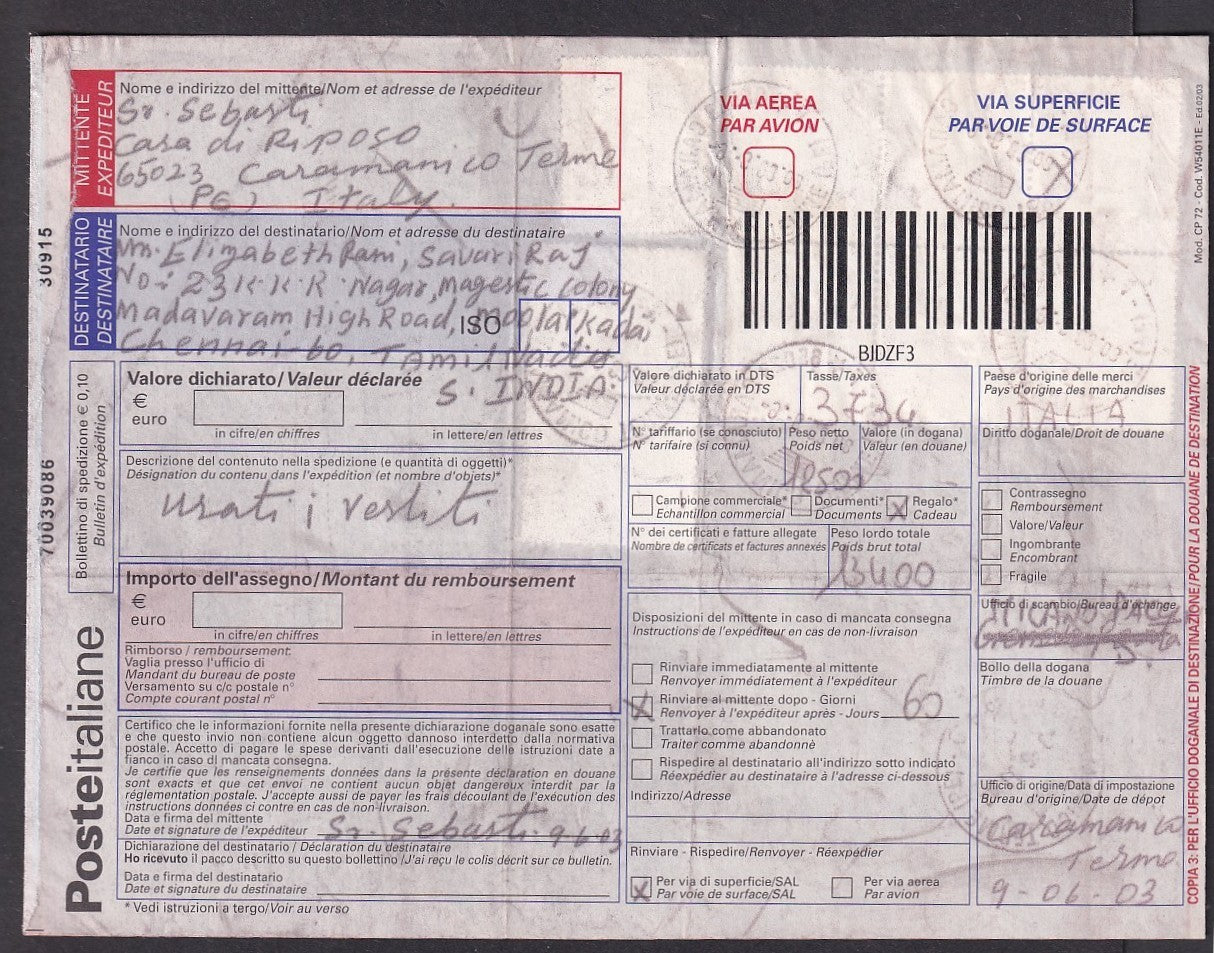 MITTENTE
EXPEDITEUR
Nome e indirizzo del mittente/Nom et adresse de l'expéditeur
Sr. Sebasti
Casa di Riposo
65023 Caramanico Terme
(PE) Italy.
DESTINATARIO
DESTINATAIRE
Nome e indirizzo del destinatario/Nom et adresse du destinataire
Mrs. Elizabeth Rani, Savari Raj
No: 23 K.K.R. Nagar, Magestic Colony
Madavaram High Road, Moolai Kadai
ISO
Chennai-60. Tamil Nadu
S. INDIA.
VIA AEREA
PAR AVION
VIA SUPERFICIE
PAR VOIE DE SURFACE
BJDZF3
Mod. CP 72 - Cod. W54011E - Ed.02/03
30915
70039086
Bollettino di spedizione € 0,10
Bulletin d'expédition
Posteitaliane
Valore dichiarato/Valeur déclarée
€
euro
in cifre/en chiffres
in lettere/en lettres
Descrizione del contenuto nella spedizione (e quantità di oggetti)*
Désignation du contenu dans l'expédition (et nombre d'objets)*
usati i vestiti
Importo dell'assegno/Montant du remboursement
€
euro
in cifre/en chiffres
in lettere/en lettres
Rimborso / remboursement:
Vaglia presso l'ufficio di
Mandant du bureau de poste
Versamento su c/c postale n°
Compte courant postal n°
Certifico che le informazioni fornite nella presente dichiarazione doganale sono esatte
e che questo invio non contiene alcun oggetto dannoso interdetto dalla normativa
postale. Accetto di pagare le spese derivanti dall'esecuzione delle istruzioni date a
fianco in caso di mancata consegna.
Je certifie que les renseignements données dans la présente déclaration en douane
sont exacts et que cet envoi ne contient aucun objet dangereux interdit par la
réglementation postale. J'accepte aussi de payer les frais découlant de l'exécution des
instructions données ci contre en cas de non-livraison.
Data e firma del mittente
Date et signature de l'expéditeur Sr. Sebasti 9-6-03
Dichiarazione del destinatario / Déclaration du destinataire
Ho ricevuto il pacco descritto su questo bollettino /J'ai reçu le colis décrit sur ce bulletin.
Data e firma del destinatario
Date et signature du destinataire
* Vedi istruzioni a tergo/Voir au verso
Valore dichiarato in DTS
Valeur déclarée en DTS
Tasse/Taxes
3734
N° tariffario (se conosciuto)
N° tarifaire (si connu)
Peso netto
Poids net
12500
Valore (in dogana)
Valeur (en douane)
Campione commerciale*
Echantillon commercial
Documenti*
Documents
X
Regalo*
Cadeau
N° dei certificati e fatture allegate
Nombre de certificats et factures annexés
Peso lordo totale
Poids brut total
13400
Disposizioni del mittente in caso di mancata consegna
Instructions de l'expéditeur en cas de non-livraison
Rinviare immediatamente al mittente
Renvoyer immédiatement à l'expéditeur
X
Rinviare al mittente dopo - Giorni
Renvoyer à l'expéditeur après - Jours 60
Trattarlo come abbandonato
Traiter comme abandonnè
Rispedire al destinatario all'indirizzo sotto indicato
Réexpédier au destinataire à l'adresse ci-dessous
Indirizzo/Adresse
Rinviare - Rispedire/Renvoyer - Réexpédier
X
Per via di superficie/SAL
Par voie de surface/SAL
Per via aerea
Par avion
Paese d'origine delle merci
Pays d'origine des marchandises
ITALIA
Diritto doganale/Droit de douane
Contrassegno
Remboursement
Valore/Valeur
Ingombrante
Encombrant
Fragile
Ufficio di scambio/Bureau d'échange
Bollo della dogana
Timbre de la douane
Ufficio di origine/Data di impostazione
Bureau d'origine/Date de dépot
Caramanico
Terme
9-06-03
COPIA 3: PER L'UFFICIO DOGANALE DI DESTINAZIONE/POUR LA DOUANE DE DESTINATION